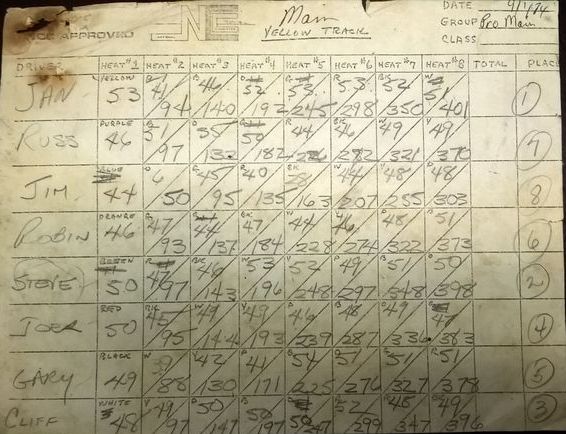 Main
YELLOW TRACK
APPROVED
DATE 9/1/74
GROUP Pro Main
CLASS
DRIVER HEAT #1 HEAT #2 HEAT #3 HEAT #4 HEAT #5 HEAT #6 HEAT #7 HEAT #8 TOTAL PLACE
YELLOW
JAN 53 41/94 46/140 52/192 53/245 53/298 52/350 51/401 1
PURPLE
RUSS 46 51/97 35/132 50/182 44/226 46/272 49/321 49/370 7
BLUE
JIM 44 6/50 45/95 40/135 28/163 44/207 48/255 48/303 8
ORANGE
ROBIN 46 47/93 44/137 47/184 44/228 46/274 48/322 51/373 6
GREEN
STEVE 50 47/97 46/143 53/196 52/248 49/297 51/348 50/398 2
RED
JOEL 50 45/95 49/144 49/193 46/239 48/287 49/336 47/383 4
BLACK
GARY 49 39/88 42/130 41/171 54/225 51/276 51/327 51/378 5
WHITE
CLIFF 48 49/97 50/147 50/197 50/247 52/299 48/347 49/396 3